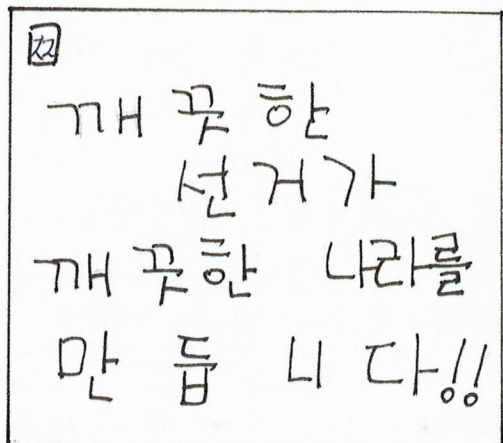 깨끗한
선거가
깨끗한 나라를
만듭니다!!